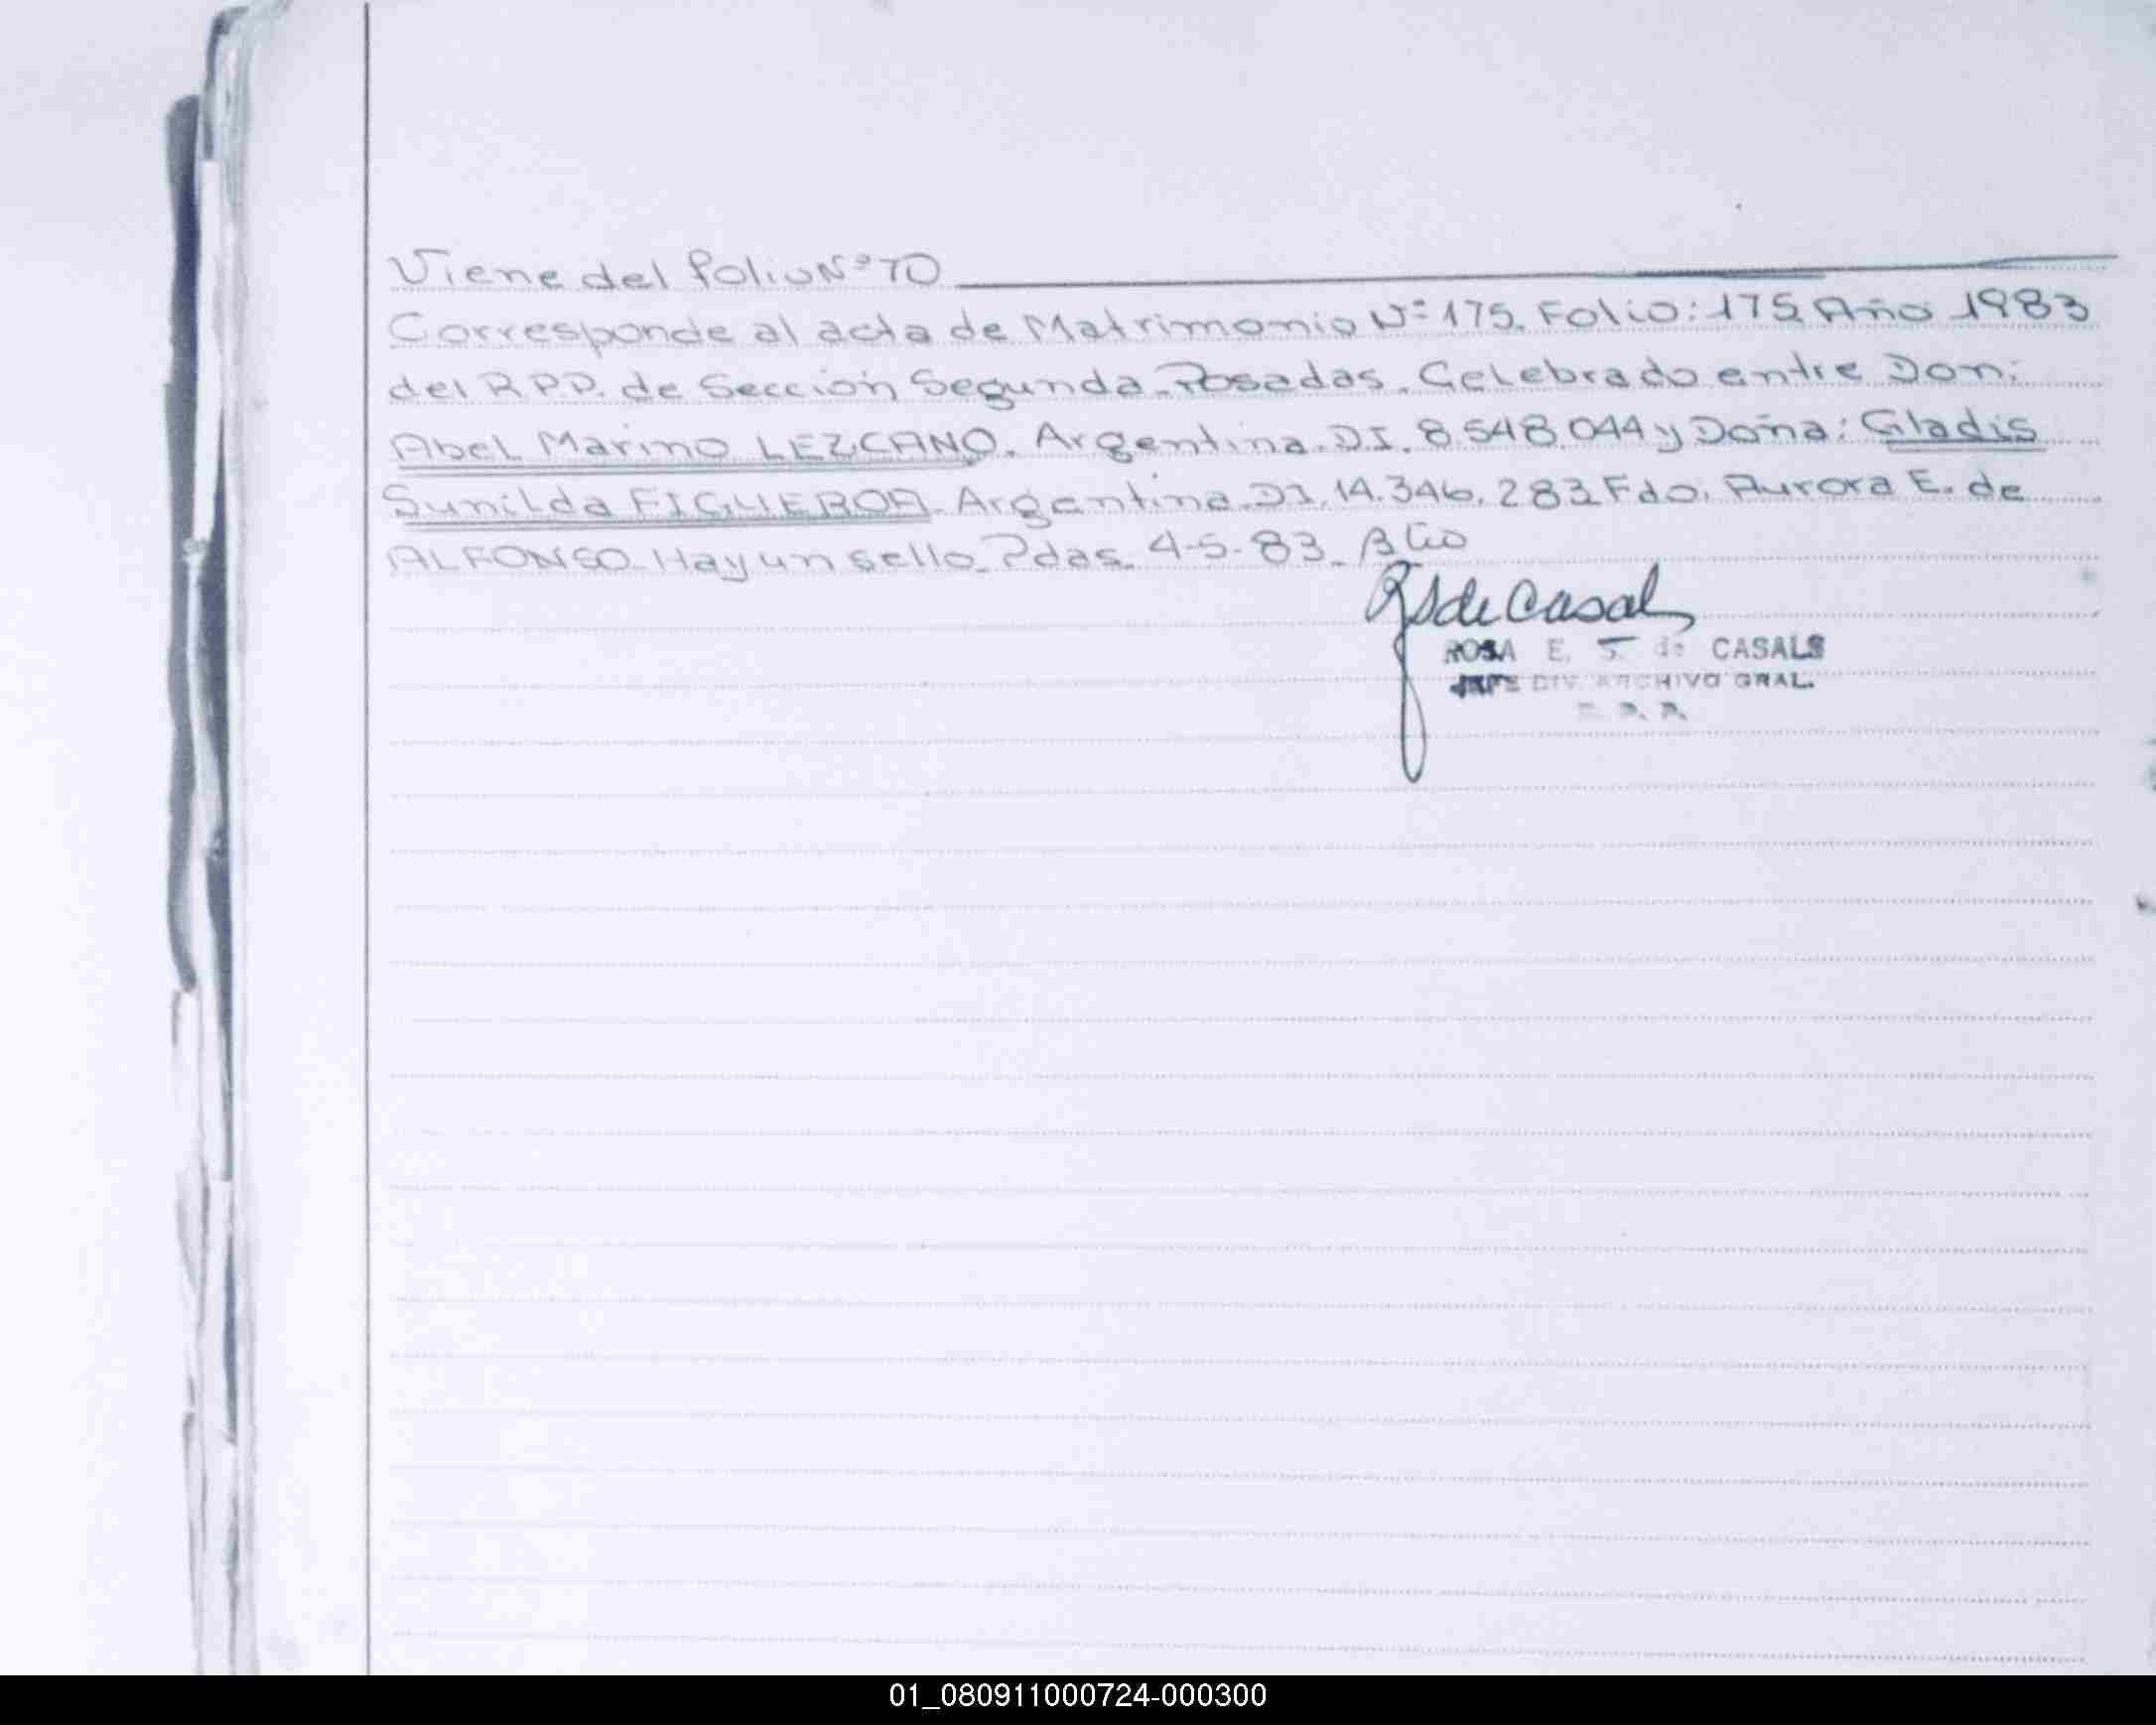 Viene del folio Nº 70
Corresponde al acta de Matrimonio Nº 175. Folio: 175 Año 1983
del R.P.P. de Sección Segunda-Posadas. Celebrado entre Don:
Abel Marino LEZCANO. Argentina. D.I. 8.548.044 y Doña: Gladis
Sunilda FIGUEROA. Argentina. D.I. 14.346.283 Fdo. Aurora E. de
ALFONSO. Hay un sello. Pdas. 4-5-83.
RS de Casal
ROSA E. S. de CASALS
JEFE DIV. ARCHIVO GRAL.
01_080911000724-000300